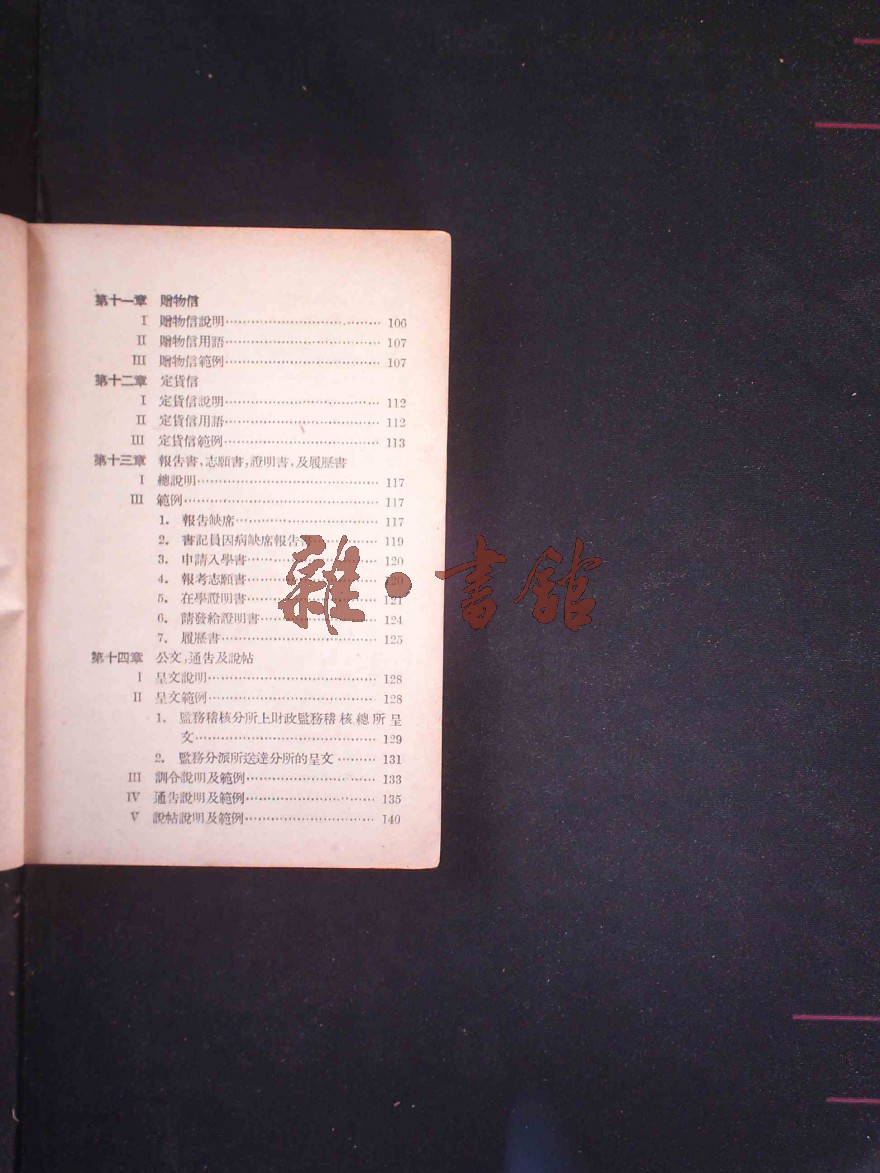 第十一章 贈物信
I 贈物信說明 106
II 贈物信用語 107
III 贈物信範例 107
第十二章 定貨信
I 定貨信說明 112
II 定貨信用語 112
III 定貨信範例 113
第十三章 報告書,志願書,證明書,及履歷書
I 總說明 117
III 範例 117
1. 報告缺席 117
2. 書記員因病缺席報告書 119
3. 申請入學書 120
4. 報考志願書 120
5. 在學證明書 121
6. 請發給證明書 124
7. 履歷書 125
第十四章 公文,通告及說帖
I 呈文說明 128
II 呈文範例 128
1. 監務稽核分所上財政監務稽核總所呈
文 129
2. 監務分派所送達分所的呈文 131
III 訓令說明及範例 133
IV 通告說明及範例 135
V 說帖說明及範例 140
雜·書館